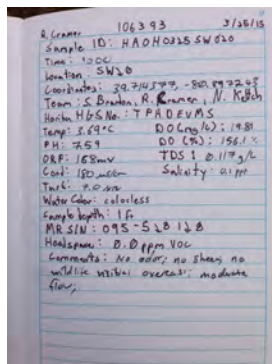 R. Cramer 106393 3/25/15
Sample ID: HAOH0325SW020
Time: 1200
Location: SW20
Coordinates: 39.714377, -80.897243
Team: S. Branton, R. Cramer, N. Ketch
Horiba HGS No.: TPADEVMS
Temp: 3.69°C DO (mg/L): 19.81
PH: 7.59 DO (%): 156.1%
ORP: 168mv TDS: 0.117 g/L
Cond: 180 us/cm Salinity: 0.1 ppt
Turb: 7.0 NTU
Water Color: colorless
Sample depth: 1 ft
MR S/N: 095-528128
Headspace: 0.0 ppm VOC
Comments: No odor; no sheen; no
wildlife visibal overcast; moderate
flow;